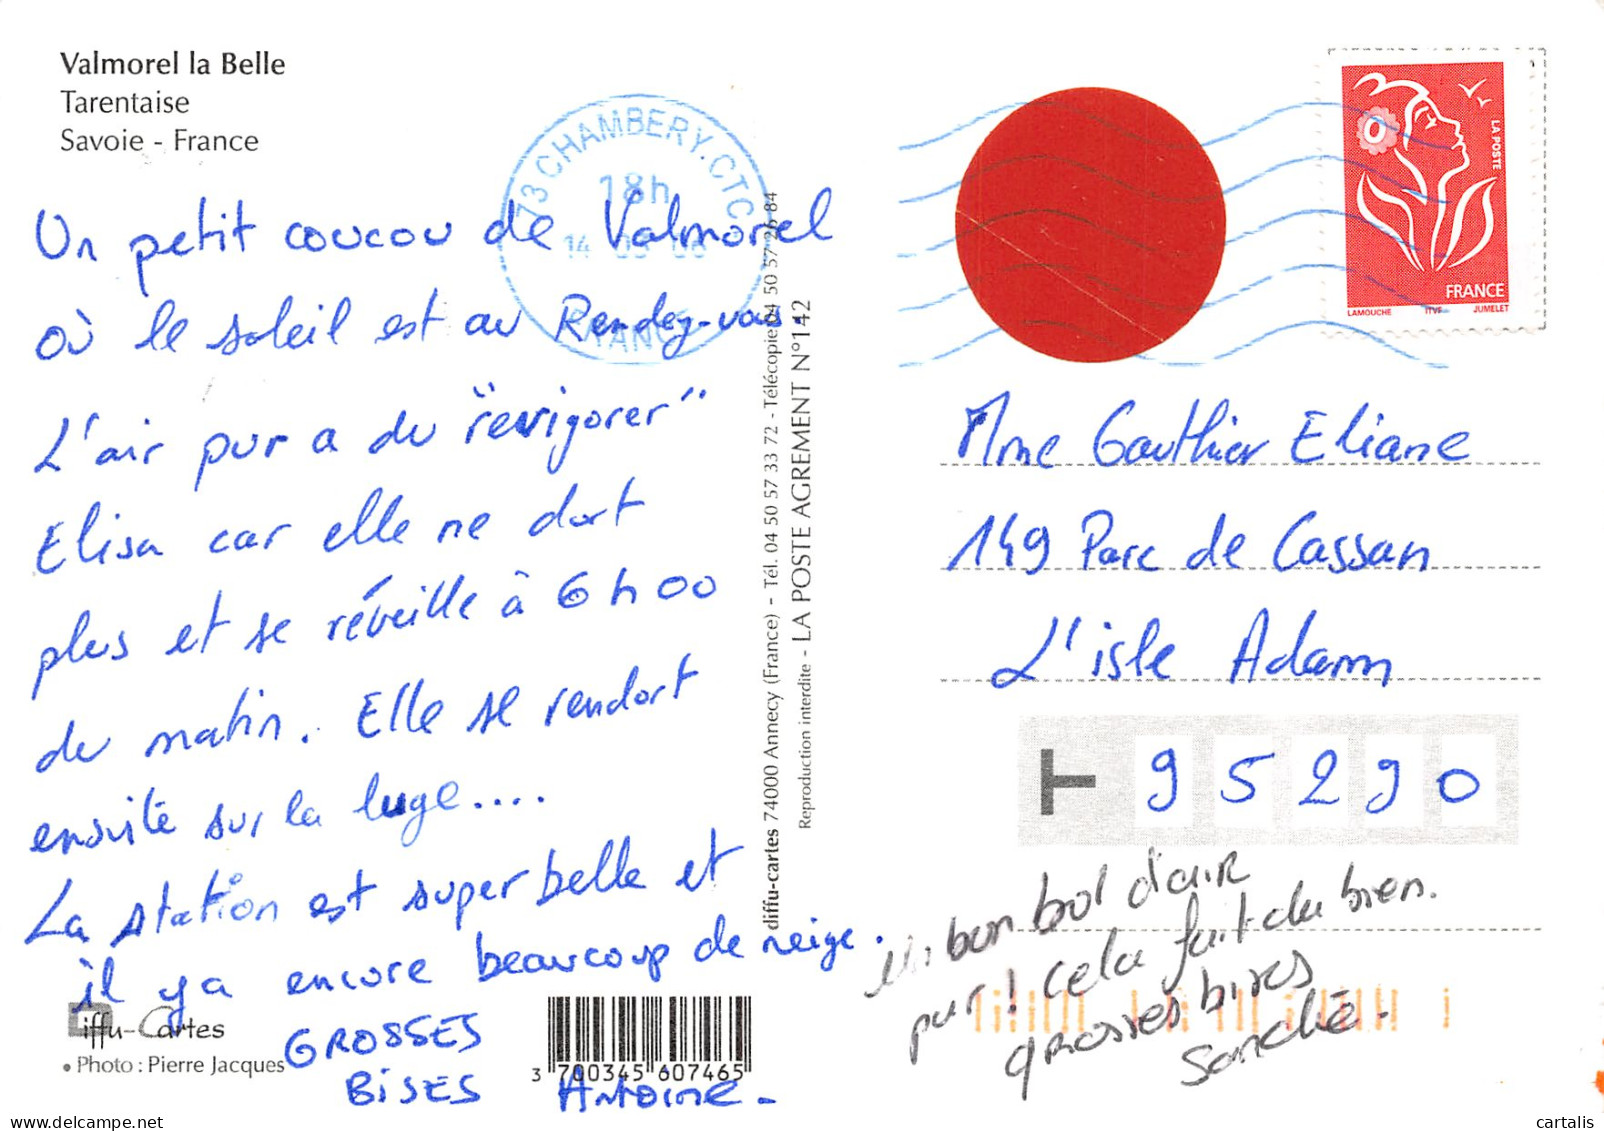 Valmorel la Belle
Tarentaise
Savoie - France
73 CHAMBERY.CTC
18h
FRANCE
LA POSTE
FRANCE
LAMOUCHE ITVF JUMELET
Un petit coucou de Valmorel
où le soleil est au Rendez-vous.
L'air pur a du "revigorer"
Elisa car elle ne dort
plus et se réveille à 6h00
du matin. Elle se rendort
ensuite sur la luge....
La station est super belle et
il y a encore beaucoup de neige.
GROSSES
BISES Antoine -
Mme Gauthier Eliane
149 Parc de Cassan
L'isle Adam
T 95290
un bon bol d'air
pur ! cela fait du bien.
grosses bises
Sanché.
diffu-cartes 74000 Annecy (France) - Tél. 04 50 57 33 72 - Télécopie 04 50 57 26 84
Reproduction interdite - LA POSTE AGREMENT N°142
Diffu-Cartes
• Photo : Pierre Jacques
3 700345 607465
cartalis